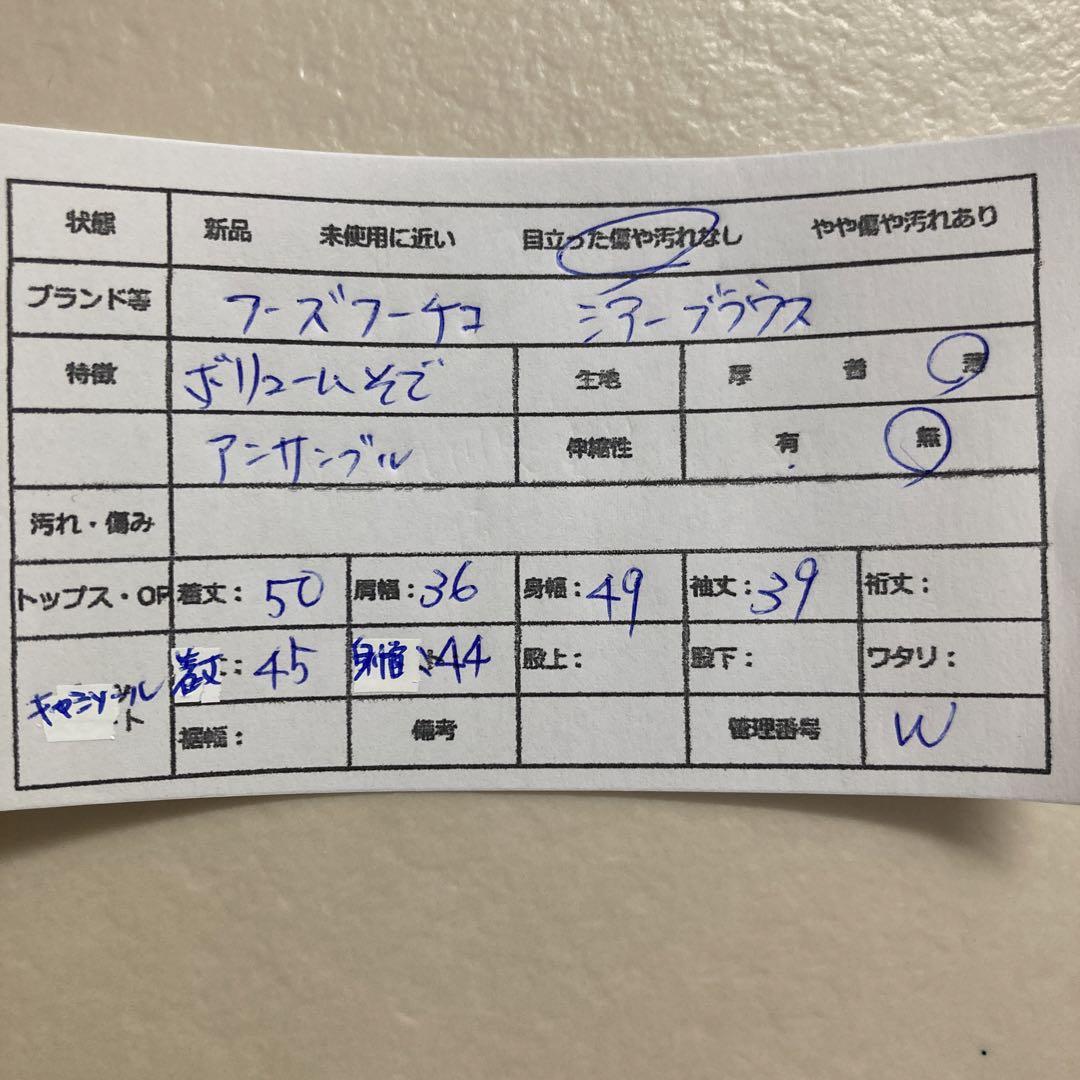 状態 新品 未使用に近い 目立った傷や汚れなし やや傷や汚れあり
ブランド等 フーズフーチコ シアーブラウス
特徴 ボリュームそで 生地 厚 普 薄
アンサンブル 伸縮性 有 無
汚れ・傷み
トップス・OP 着丈: 50 肩幅: 36 身幅: 49 袖丈: 39 裄丈:
キャミソール 着丈: 45 身幅: 44 股上: 股下: ワタリ:
ト 裾幅: 備考 管理番号 W